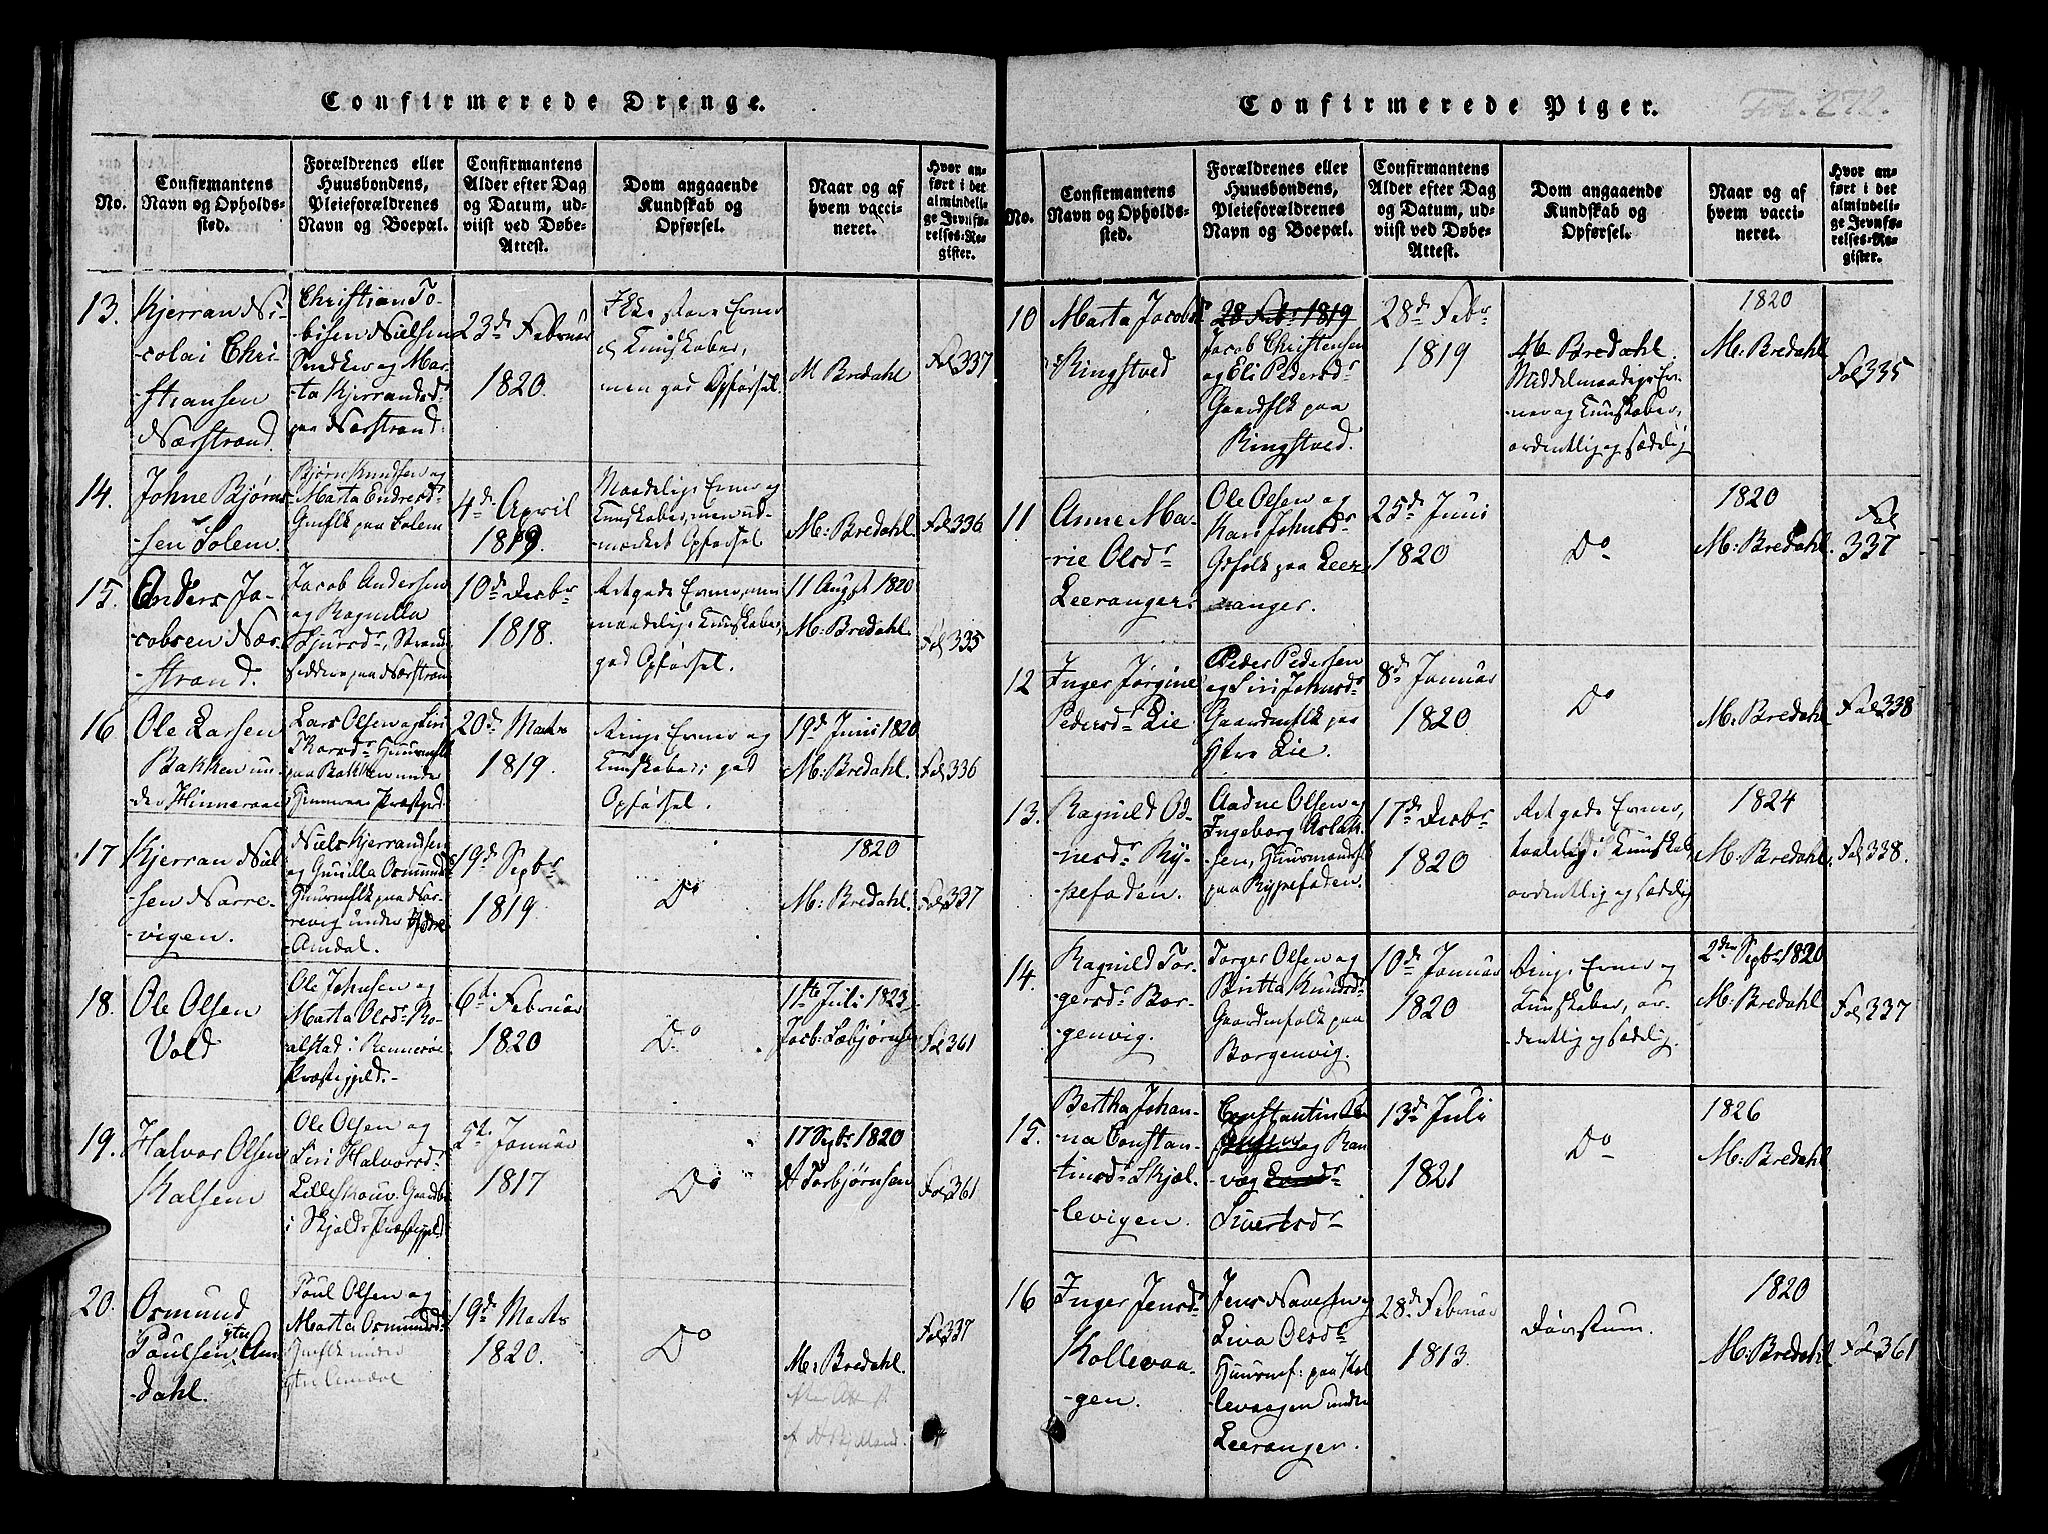 Confirmerede Drenge.
No.
Confirmantens
Navn og Opholds-
sted.
Forældrenes eller
Huusbondens,
Pleieforældrenes
Navn og Boepæl.
Confirmantens
Alder efter Dag
og Datum, ud-
viist ved Døbe-
Attest.
Dom angaaende
Kundskab og
Opførsel.
Naar og af
hvem vacci-
neret.
Hvor an-
ført i det
almindeli-
ge Jevnfø-
relses-Re-
gister.
13.
Kjerran Ni-
colai Chri-
stiansen
Nærstrand.
Christian To-
biesen Nielsen
og Mar-
ta Kjerrandsdr
paa Nærstrand.
23de Februar
1820.
Ikke store Evner
og Kundskaber,
men god Opførsel.
M Bredahl
Fol 337
14.
Johne Bjørn-
sen Solem.
Bjørn Knudsen og
Marta Endresdr
Gmflk paa Solem
4de April
1819.
Maadelige Evner og
Kundskaber, men ud-
mærket Opførsel
M: Bredahl.
Fol 336
15.
Enders Ja-
cobsen Nær-
strand.
Jacob Andersen
og Ragnilla
Sjursdr, Strand-
siddere paa Nærstrand
10de Decbr
1818.
Ret gode Evner, men
maadelige Kundskaber,
god Opførsel.
11 August 1820
M: Bredahl.
Fol 335
16
Ole Larsen
Bakken un-
der Hinneraae
Lars Olsen og Siri
Thorsdr Huusmflk
paa Bakken under
Præstgrd.
20de Marts
1819.
Ringe Evner og
Kundskaber; god
Opførsel.
19de Juni 1820
M: Bredahl.
Fol 336
17
Kjerran Niel-
sen Narre-
vigen.
Niels Kjerrandsen
og Gunilla Osmunds
Huusmflk paa Nar-
revig under Ydre
Amdal.
19de Septbr
1819.
Do
1820
M: Bredahl.
Fol 337
18.
Ole Olsen
Vold
Ole Johnsen og
Marta Olsdr Ro-
alstad i Rennesøe
Præstegjeld.
6te Februar
1820
Do
1ste Juli 1823,
Fol 361
19.
Halvor Olsen
Kalsem
Ole Olsen og
Siri Halvorsdr
i Skjolds Præstegjeld
5te Januar
1817
Do
17 Septbr 1820
A Torbjørnsen
Fol 361
20.
Osmund
Paulsen ytre Am-
dahl.
Paul Olsen og
Marta Osmundsdr
Gmflk under
ytre Amdal
19de Marts
1820.
Do
M: Bredahl.
efter Attest
af
Fol 337
Confirmerede Piger.
Fol. 272.
No.
Confirmantens
Navn og Opholds-
sted.
Forældrenes eller
Huusbondens,
Pleieforældrenes
Navn og Boepæl.
Confirmantens
Alder efter Dag
og Datum, ud-
viist ved Døbe-
Attest.
Dom angaaende
Kundskab og
Opførsel.
Naar og af
hvem vacci-
neret.
Hvor an-
ført i det
almindeli-
ge Jevnfø-
relses-Re-
gister.
10
Marta Jacobsdr
Ringstved
28 Febr 1819
Jacob Christensen
og Eli Pedersdr
Gaardflk paa
Ringstved.
28de Febr
1819
M. Bredahl.
Middelmaadige Ev-
ner og Kundskaber,
ordentlig og sædelig
1820
M: Bredahl
Fol 335
11
Anne Ma-
rie Olsdr
Leeranger.
Ole Olsen og
Kari Johnsdr
Gsfolk paa Leer-
anger.
25de Juni
1820
Do
1820
M: Bredahl.
Fol
337
12
Inger Jørgine
Pedersdr Lie
Peder Pedersen
og Siri Johnsdr
Gaardmflk paa
Ytre Lie.
8de Januar
1820
Do
M: Bredahl
Fol 338
13.
Ragnild Od-
nesdr Ry-
pefaden.
Aadne Olsen og
Ingeborg Aslak-
sen, Huusmandsflk
paa Rypefaden.
17de Decbr
1820
Ret gode Evner,
taalelige Kundskab,
ordentlig og sædelig
1824
M: Bredahl.
Fol 338.
14.
Ragnild Tor-
gersdr Bor-
genvig.
Torger Olsen og
Britta Knudsd
Gaardmfolk paa
Borgenvig.
10de Januar
1820
Ringe Evner og
Kundskaber, or-
dentlig og sædelig.
2den Septbr 1820
M: Bredahl
Fol 337
15.
Bertha Johan-
na Constan-
tinsdr Skjæl-
levigen.
Constantin
og Ran-
væg
Sivertsdr
13de Juli
1821
Do
1826
M: Bredahl
16
Inger Jensdr
Kollevaa-
gen.
Jens Navesen og
Liva Olsdr
Huusmf: paa Kol-
levaagen under
Leeranger.
28de Februar
1813.
Døvstum.
1820
M: Bredahl
Fol 361